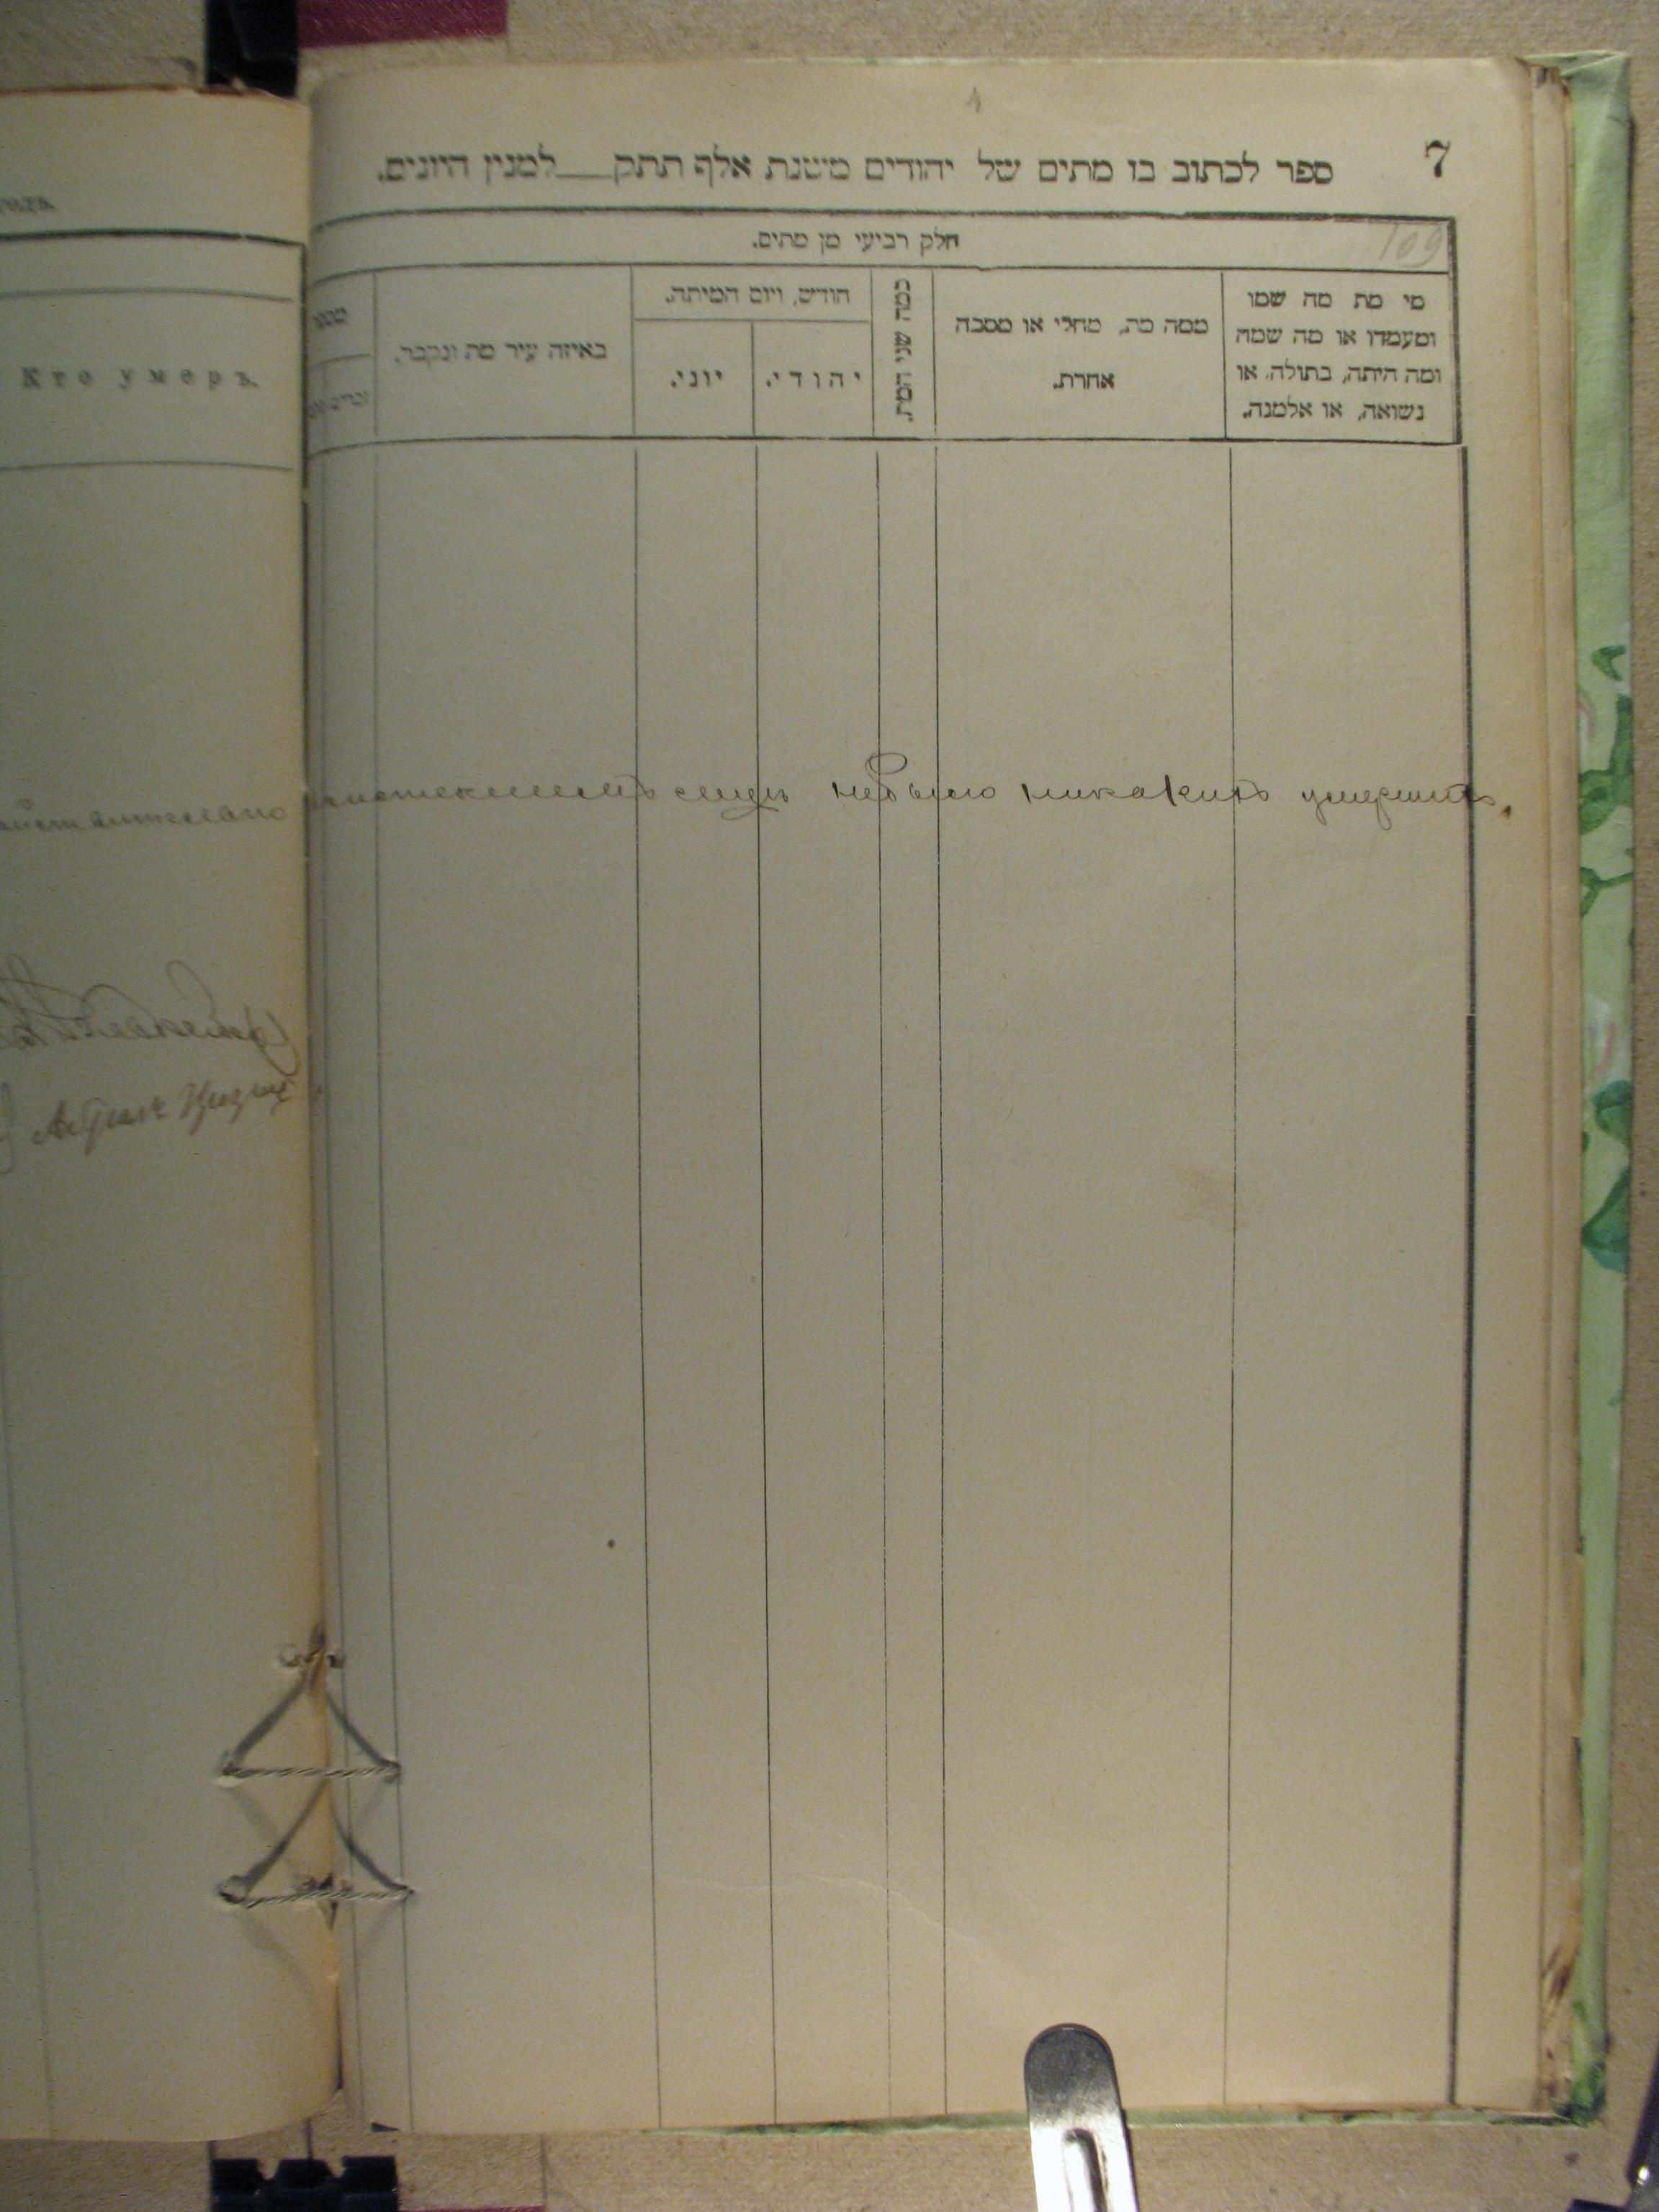 7
ספר לכתוב בו מתים של יהודים משנת אלף תתק___למנין היונים.
109
חלק רביעי מן מתים.
מי מת מה שמו
ומעמדו או מה שמה
ומה היתה, בתולה, או
נשואה, או אלמנה.
ממה מת, מחלי או מסבה
אחרת.
כמה שני המת.
חודש, ויום המיתה.
יהודי.
יוני.
באיזה עיר מת ונקבר.
Кто умеръ.
семъ небыло никакихъ умершихъ.